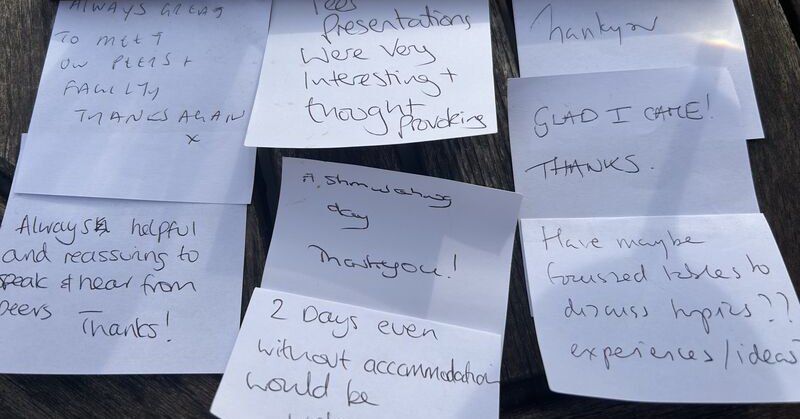 ALWAYS GREAT
TO MEET
OUR PEERS +
FACULTY
THANKS AGAIN
x
Presentations
Were very
Interesting +
thought
Provoking
Thankyou
GLAD I CAME!
THANKS.
Always helpful
and reassuring to
speak & hear from
peers
Thanks!
day
Thankyou!
2 Days even
without accommodation
would be
Have maybe
focussed tables to
discuss topics??
experiences/ideas